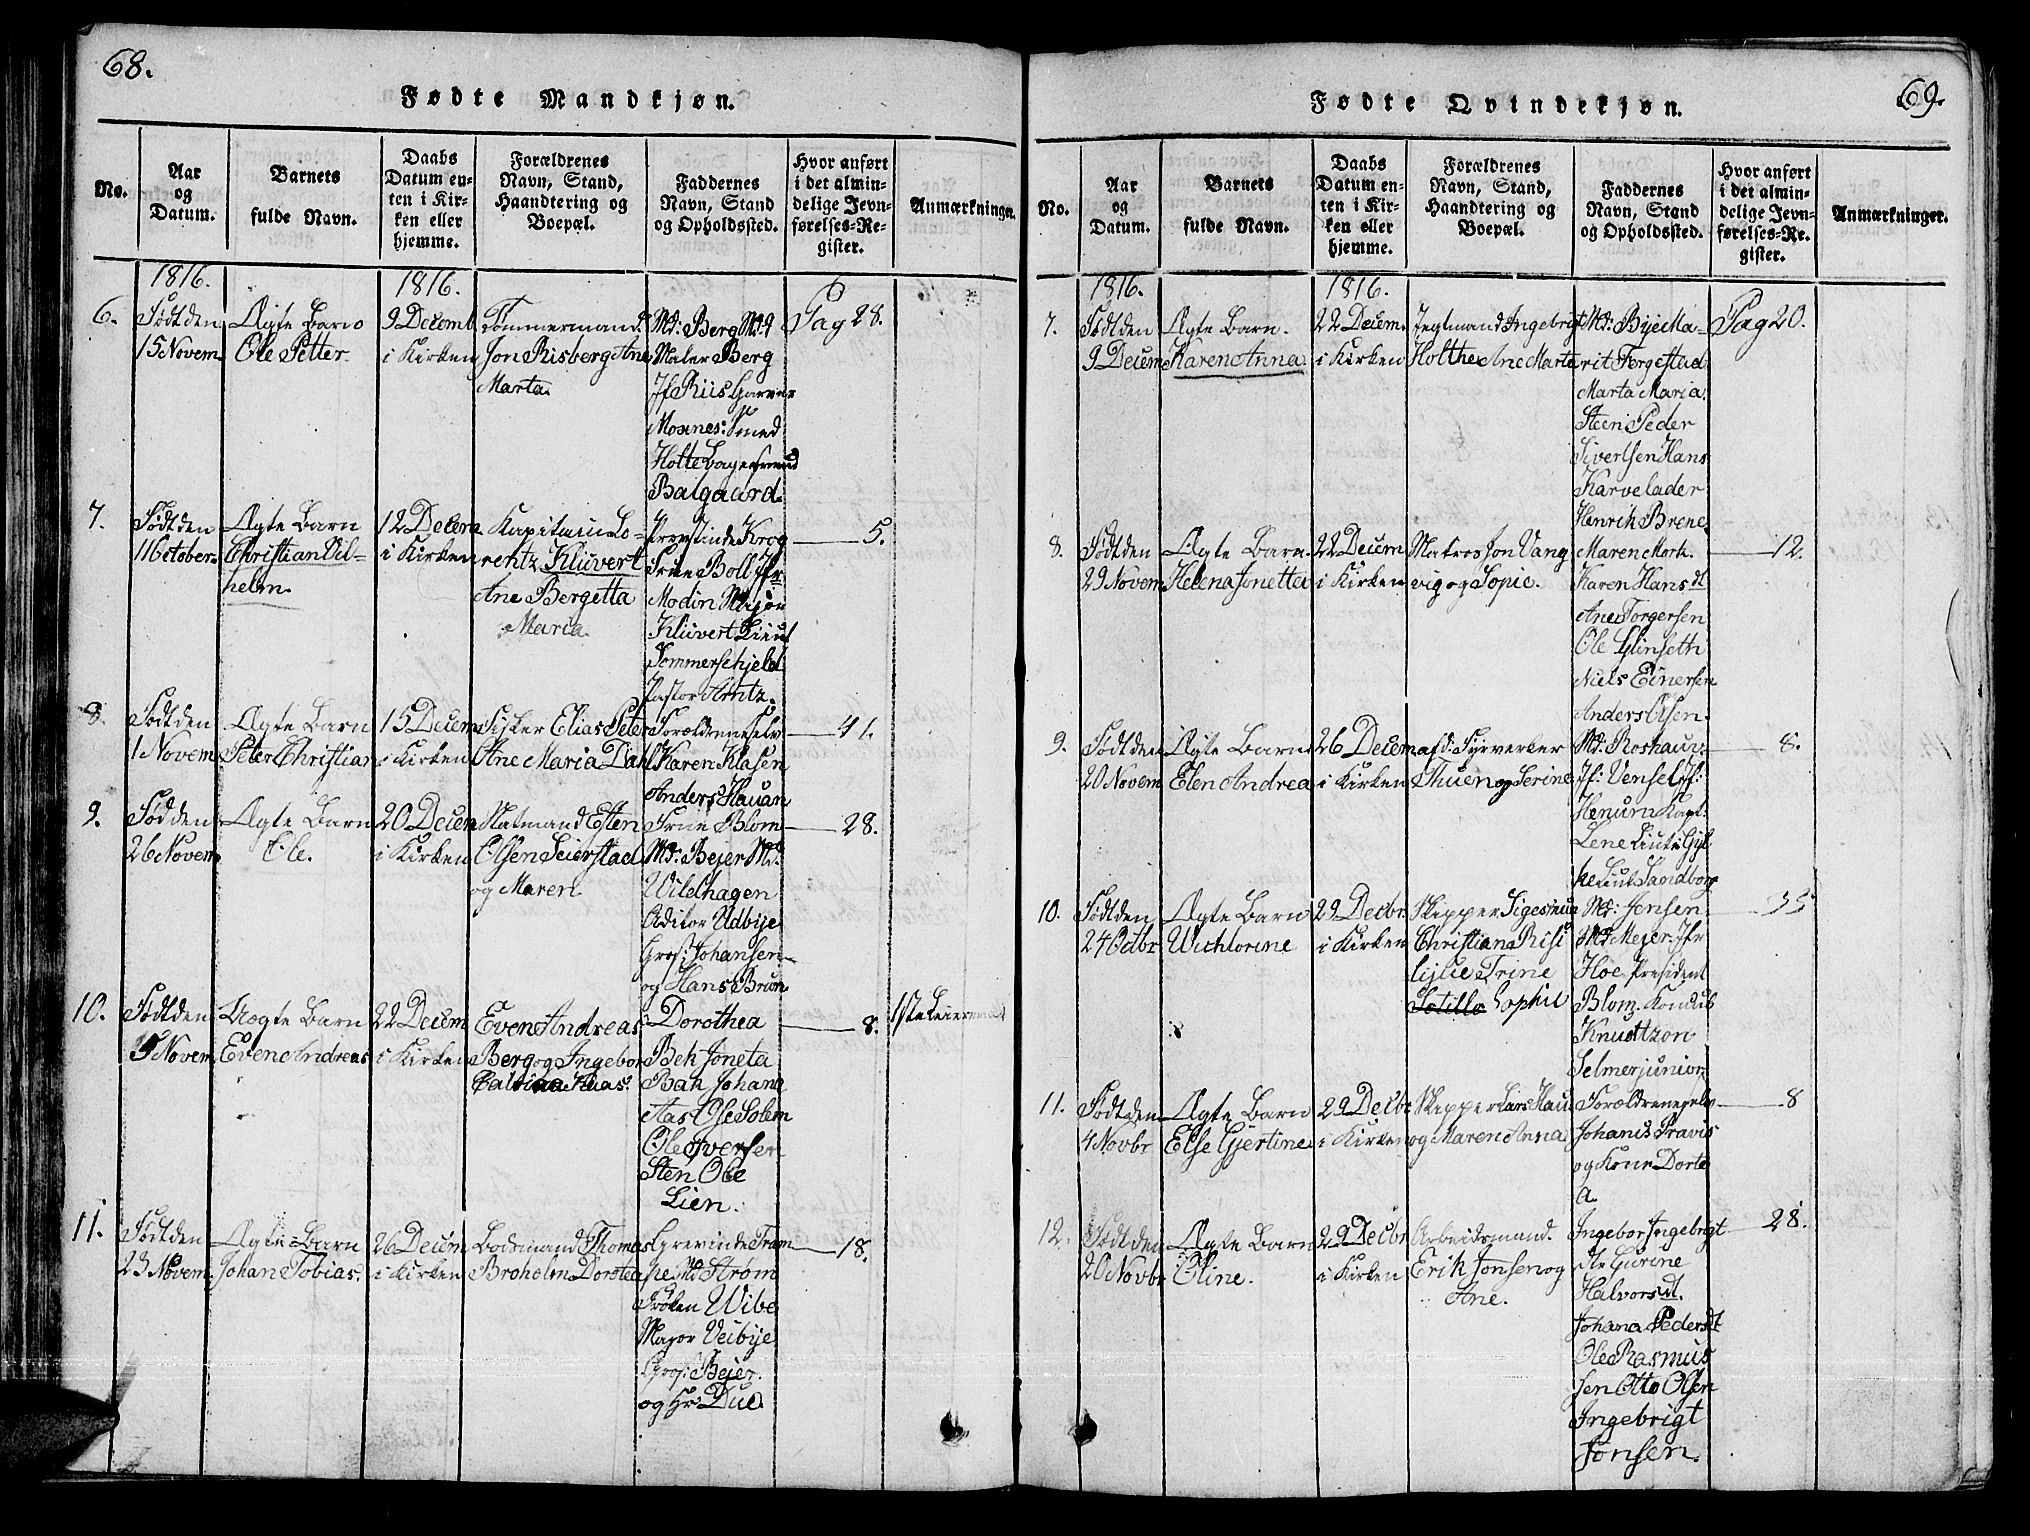 68.
Fødte Mandkjøn.
No.
Aar og Datum.
Barnets fulde Navn.
Daabs Datum enten i Kirken eller hjemme.
Forældrenes Navn, Stand, Haandtering og Boepæl.
Faddernes Navn, Stand og Opholdssted.
Hvor anført i det almindelige Jevnførelses-Register.
Anmærkninger.
1816.
1816.
6.
Født den
15 Novem
Ægte Barn
Ole Petter.
9 Decemb
i Kirken
Tømmermand.
Jon Risberg Ane
Marta.
Md: Berg Md
Maler Berg
Jf Riis Garver
Moxnes: Smed
Holte
Balgaard.
Pag 28.
7.
Født den
11 October.
Ægte Barn
Christian Vil-
helm.
12 Decem
i Kirken
Kapitain Lo-
rentz Klüvert
Ane Bergetta
Maria.
Provstinde Krog
Frue Boll Jfr
Modin Major
Klüvert Lieut
Sommerschjeld
Pastor Arntz.
5.
8.
Født den
1 Novem
Ægte Barn
Peter Christian
15 Decem
i Kirken
Elias Peter
Ane Maria Dahl
Forældrene selv
Karen Klasen
Anders Hauan
41.
9.
Fød den
26 Novem
Ægte Barn
Ole.
20 Decem
i Kirken
Natmand Esten
Olsen Seierstad
og Maren.
Frue Blom
Md: Bejer Md.
Wildhagen
Aditor Udbye
Gros: Johansen
og Hans Brun
28.
10.
Født den
5 Novem
Uægte Barn
Even Andreas
22 Decem
i Kirken
Even Andreas
Berg og Ingebor
Dorothea
Beh Joneta
Bah Johana
Aas Ole Solem
Ole Iversen
Sten Ole
Lien.
8.
1ste Leiermaal
11.
Født den
23 Novem.
Ægte Barn
Johan Tobias.
26 Decem
i Kirken
Bodsmand Thomas
Broholm Dorotea
Grevinde Tram
pe Md Strøm
Frøken Wibe
Major Veibye
Gros: Bejer.
og Hr Due
18.
69.
Fødte Qvindekjøn.
No.
Aar og Datum.
Barnets fulde Navn.
Daabs Datum enten i Kirken eller hjemme.
Forældrenes Navn, Stand, Haandtering og Boepæl.
Faddernes Navn, Stand og Opholdssted.
Hvor anført i det almindelige Jevnførelses-Register.
Anmærkninger.
1816.
1816.
7.
Født den
9 Decem
Ægte Barn.
Karen Anna.
22 Decem.
i Kirken
Ingebrigt
Holthe Ane Marte
Md: Bye Ma-
rit Forgestad
Marta Maria
Stein Peder
Sivertsen Hans
Karvelader
Henrik Brene
Pag 20.
8.
Født den
29 Novem
Ægte Barn.
Helena Jonetta
22 Decem
i Kirken
Matros Jon Vang
vig og Sopie.
Maren Mork.
Karen Hansdt
Ane Torgersen
Ole Glinseth
Niels Einersen
Anders Olsen.
12.
9.
Født den
20 Novem
Ægte Barn
Elen Andrea
26 Decem
i Kirken
afd: Fyrverker
Thuen og Serine
Md: Roshaun:
Jf: Vensel Jf:
Lene Liut: Gyl
ke Liut Sandborg
8.
10.
Født den
24 Octbr
Ægte Barn
Wichlorine
29 Decbr.
i Kirken
Skipper Sigesmun
Christian Risi
Trine
Sophie
Md: Jensen
Md Mejer. Jfr
Hoe President
Blom. Kondub
Knudtzon
Selmer junior.
33
11.
Født den
4 Novbr
Ægte Barn
Else Gjertine
29 Decbr
i Kirken
Skipper Lars Hau
og Maren Anna
Forældrene selv
Johanis Travis
og Kone Dorte
a.
8
12.
Født den
20 Novbr
Ægte Barn
Oline.
29 Decbr
i Kirken
Arbeidsmand.
Erik Jonsen og
Ane.
Ingebor Ingebrigt
Gurine
Halvorsdt.
Johana Pedersdt
Ole Rasmus
sen Otto Olsen
Ingebrigt
Jonsen.
28.